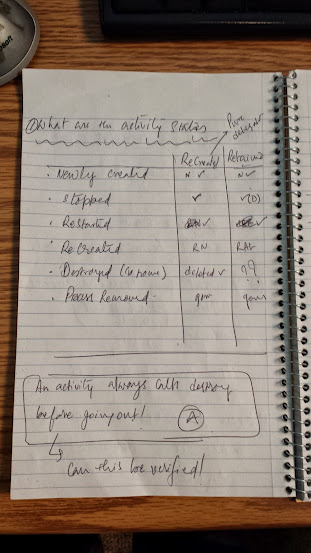 ① What are the activity states
Pure
ReCreate Retained
• Newly created N✓ N✓
• Stopped ✓ ✓(0)
• Restarted ✓ ✓
• ReCreated RN
• Destroyed deleted ✓ ??
• Process Removed - gone gone
An activity always calls destroy
before going out!
Ⓐ
↳ Can this be verified!